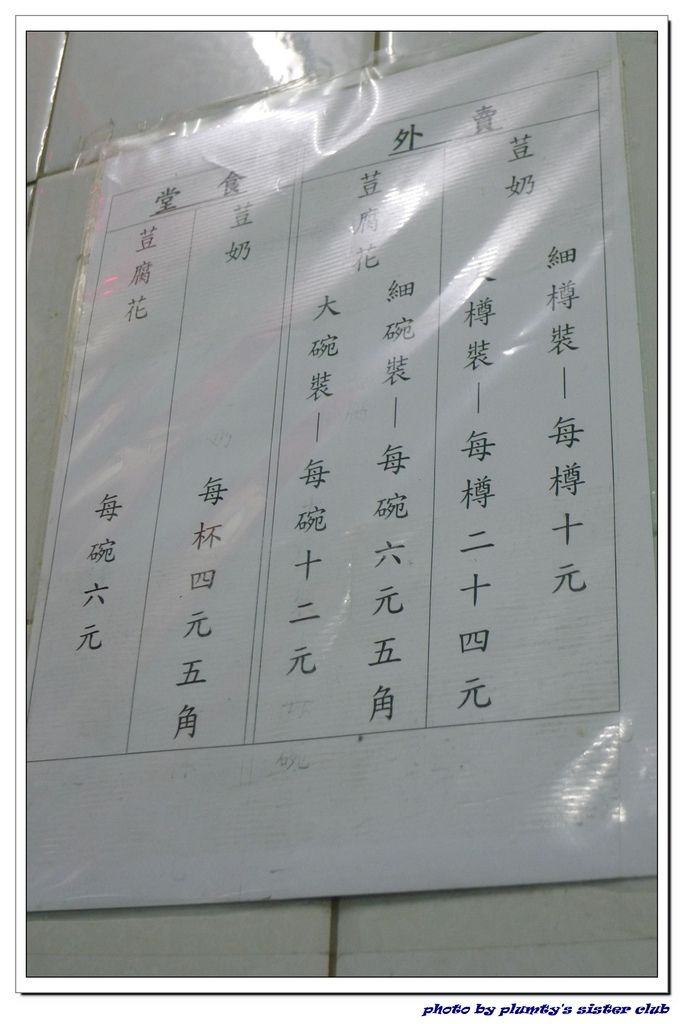 外賣
荳奶
細樽裝—每樽十元
樽裝—每樽二十四元
荳腐花
細碗裝—每碗六元五角
大碗裝—每碗十二元
堂食
荳奶
每杯四元五角
荳腐花
每碗六元
photo by plumty's sister club